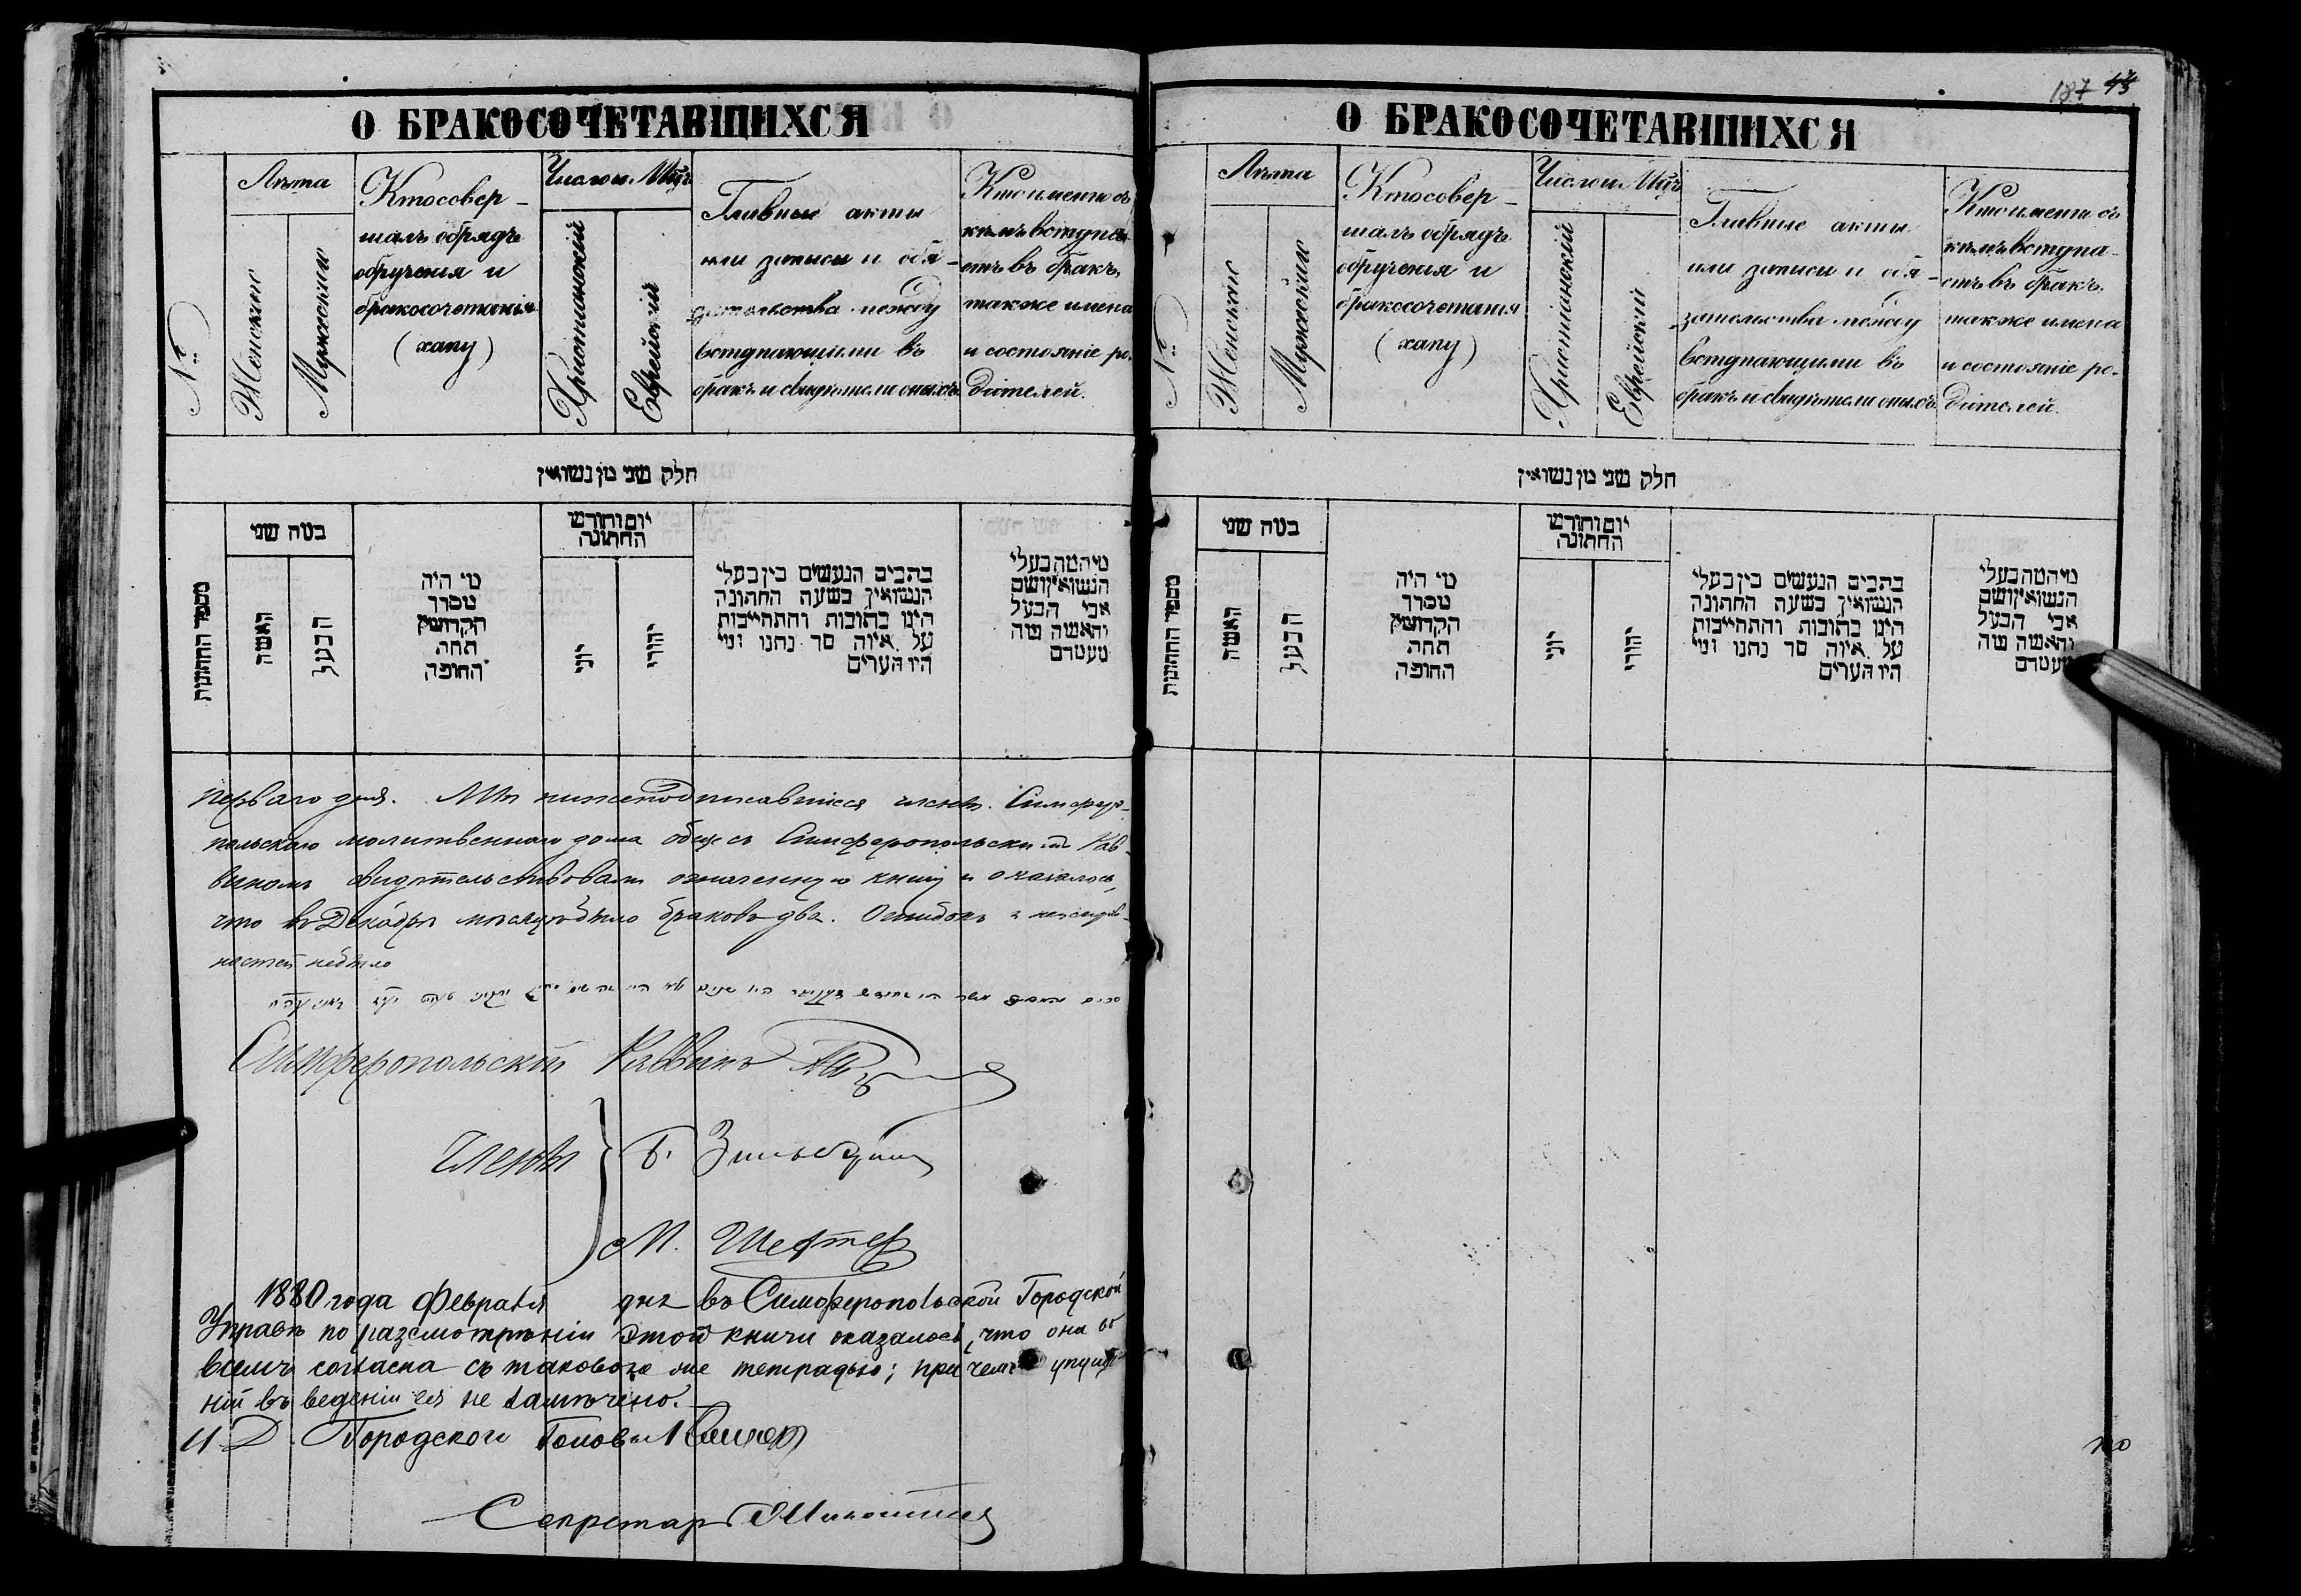 О БРАКОСОЧЕТАВШИХСЯ
№
Лѣта
Женскіе
Мужескіе
Ктосовер-
шалъ обрядъ
обрученія и
бракосочетанія
(хапу)
Число и Мцъ
Христианскій
Еврейскій
Главные акты
или записи и обя-
зательства между
вступающими въ
бракъ и свидѣтели оныхъ
Кто именно съ
кѣмъ вступа-
етъ въ бракъ,
также имена
и состояніе ро-
дителей.
חלק שני מן נשואין
מספר החתונות
כמה שני
האשה
הבעל
מי היה
מסדר
הקדושין
תחת
החופה
יום וחודש
החתונה
יוני
יהודי
כתבים הנעשים בין בעלי
הנשואין בשעה החתונה
היינו כתובות והתחייבות
על איזה סך נתנו ומי
היו העדים
מיהמה בעלי
הנשואין ושם
אבי הבעל
והאשה ומה
מעמדם
Перваго дня. Мы нижеподписавшіеся члены Симферо-
польскаго молитвеннаго дома обще съ Симферопольскимъ Рав-
виномъ свидѣтельствовали означенную книгу и оказалось,
что въ Декабрѣ мѣсяцѣ было браковъ два. Ошибокъ и неисправ-
ностей небыло
Симферопольскій Раввинъ
Члены
Б.
М. Шефтер
1880 года Февраля дня въ Симферопольской Городской
Управѣ по разсмотрѣніи этой книги оказалось, что она во
всемъ согласна съ таковою же тетрадью; причемъ упуще-
ній въ веденіи ея не замѣчено.
И Д. Городскаго Головы
Секретарь
187 43
О БРАКОСОЧЕТАВШИХСЯ
№
Лѣта
Женскіе
Мужескіе
Ктосовер-
шалъ обрядъ
обрученія и
бракосочетанія
(хапу)
Число и Мцъ
Христіанскій
Еврейскій
Главные акты
или записи и обя-
зательства между
вступающими въ
бракъ и свидѣтели оныхъ
Кто именно съ
кѣмъ вступа-
етъ въ бракъ.
также имена
и состояніе ро-
дителей.
חלק שני מן נשואין
מספר החתונות
כמה שני
האשה
הבעל
מי היה
מסדר
הקדושין
תחת
החופה
יום וחודש
החתונה
יוני
יהודי
כתבים הנעשים בין בעלי
הנשואין בשעה החתונה
היינו כתובות והתחייבות
על איזה סך נתנו ומי
היו העדים
מיהמה בעלי
הנשואין ושם
אבי הבעל
והאשה ומה
מעמדם